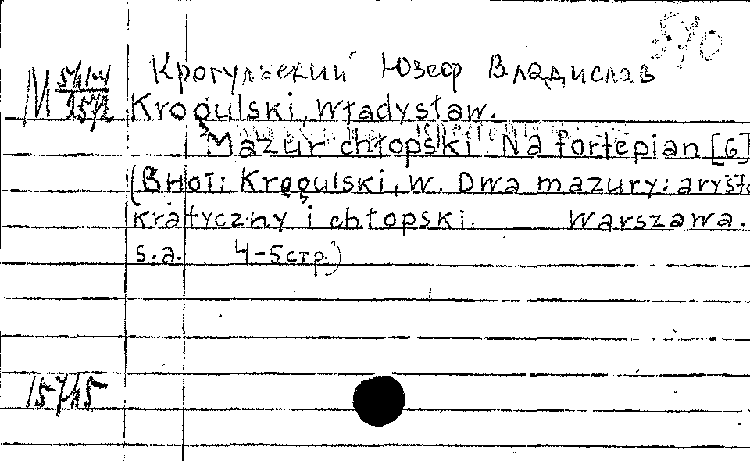 Крогульский Юзеф Владислав
Krogulski, Władysław.
Mazur chłopski Na fortepian [G]
(В нот: Krogulski, W. Dwa mazury: arysto
kratyczny i chłopski. Warszawa.
s.a. 4-5 стр.)